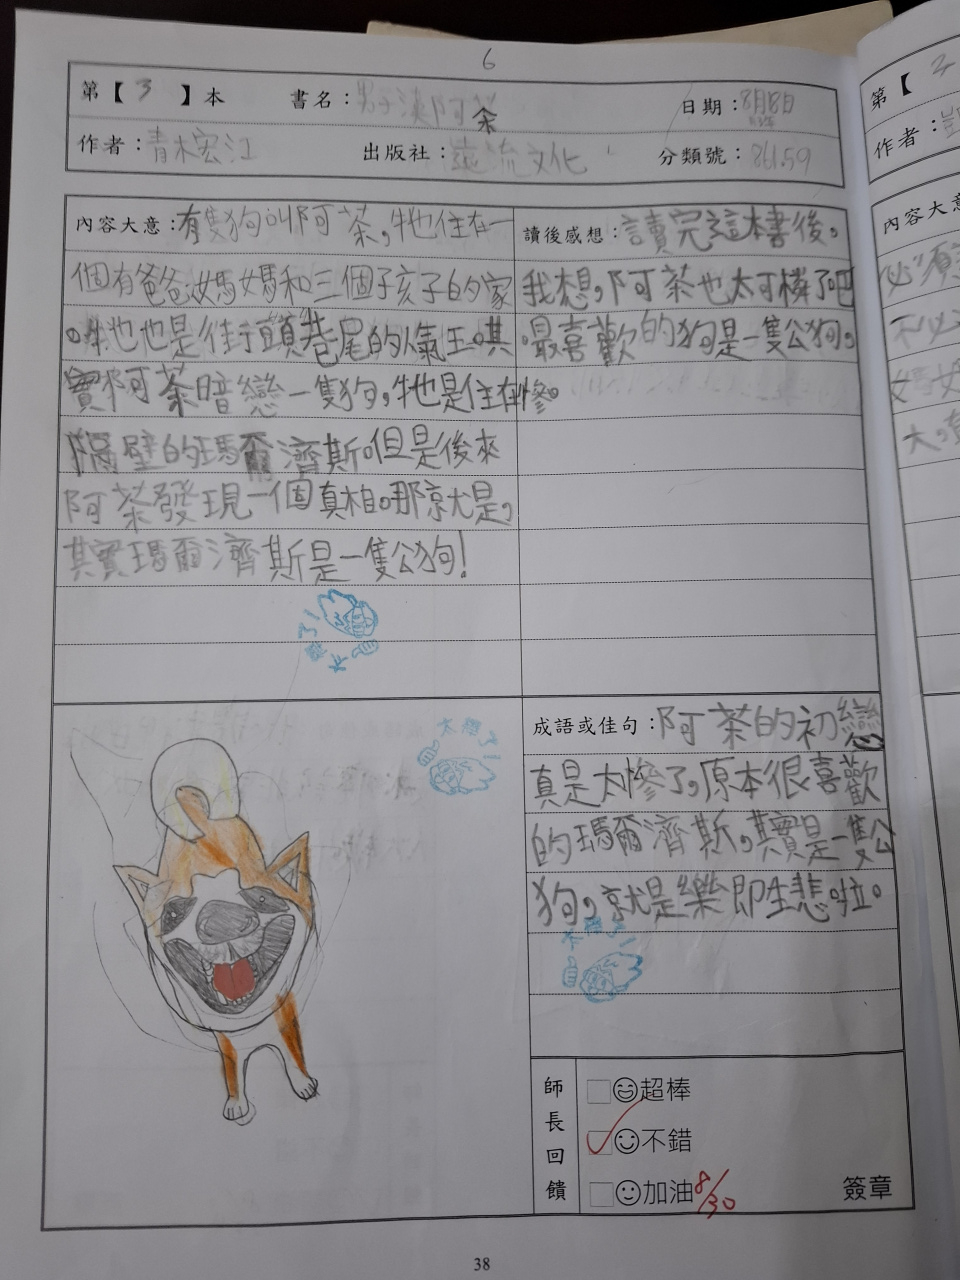 6
第【3】本 書名:男子漢阿茶 日期:8月8日
作者:青木宏江 出版社:遠流文化 分類號:861.59
內容大意:有隻狗叫阿茶,牠住在一
個有爸爸媽媽和三個子孩子的家
。牠也是街頭巷尾的人氣王。其
實阿茶暗戀一隻狗,牠是住在
隔壁的瑪爾濟斯。但是後來
阿茶發現一個真相。那就是,
其實瑪爾濟斯是一隻公狗!
太讚了!
讀後感想:讀完這本書後。
我想,阿茶也太可憐了吧
。最喜歡的狗是一隻公狗。
慘。
太讚了!
成語或佳句:阿茶的初戀
真是太慘了,原本很喜歡
的瑪爾濟斯,其實是一隻公
狗,就是樂即生悲啦。
太讚了!
師長回饋
超棒
不錯
加油 8/30
簽章
38
第【
作者:
內容大意
必須
不必